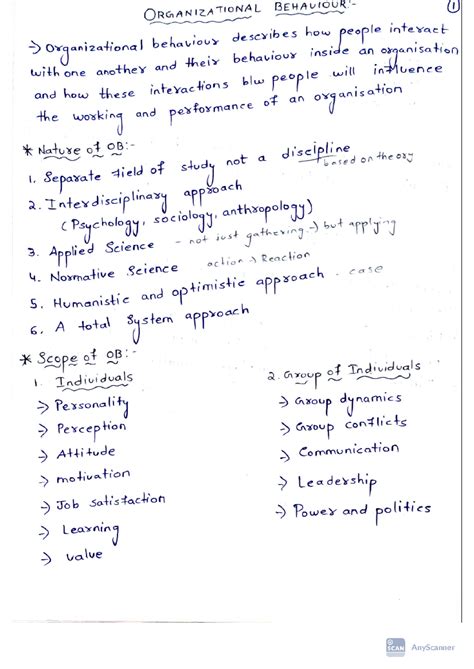 ORGANIZATIONAL BEHAVIOUR:- 1
-> Organizational behaviour describes how people interact
with one another and their behaviour inside an organisation
and how these interactions b/w people will influence
the working and performance of an organisation.
* Nature of OB:-
1. Separate field of study not a discipline
based on theory
2. Interdisciplinary approach
(Psychology, sociology, anthropology)
3. Applied Science - not just gathering -> but applying
4. Normative Science action -> Reaction
5. Humanistic and optimistic approach - case
6. A total System approach
* Scope of OB:-
1. Individuals
-> Personality
-> Perception
-> Attitude
-> motivation
-> Job satisfaction
-> Learning
-> value
2. Group of Individuals
-> Group dynamics
-> Group conflicts
-> Communication
-> Leadership
-> Power and politics
SCAN AnyScanner